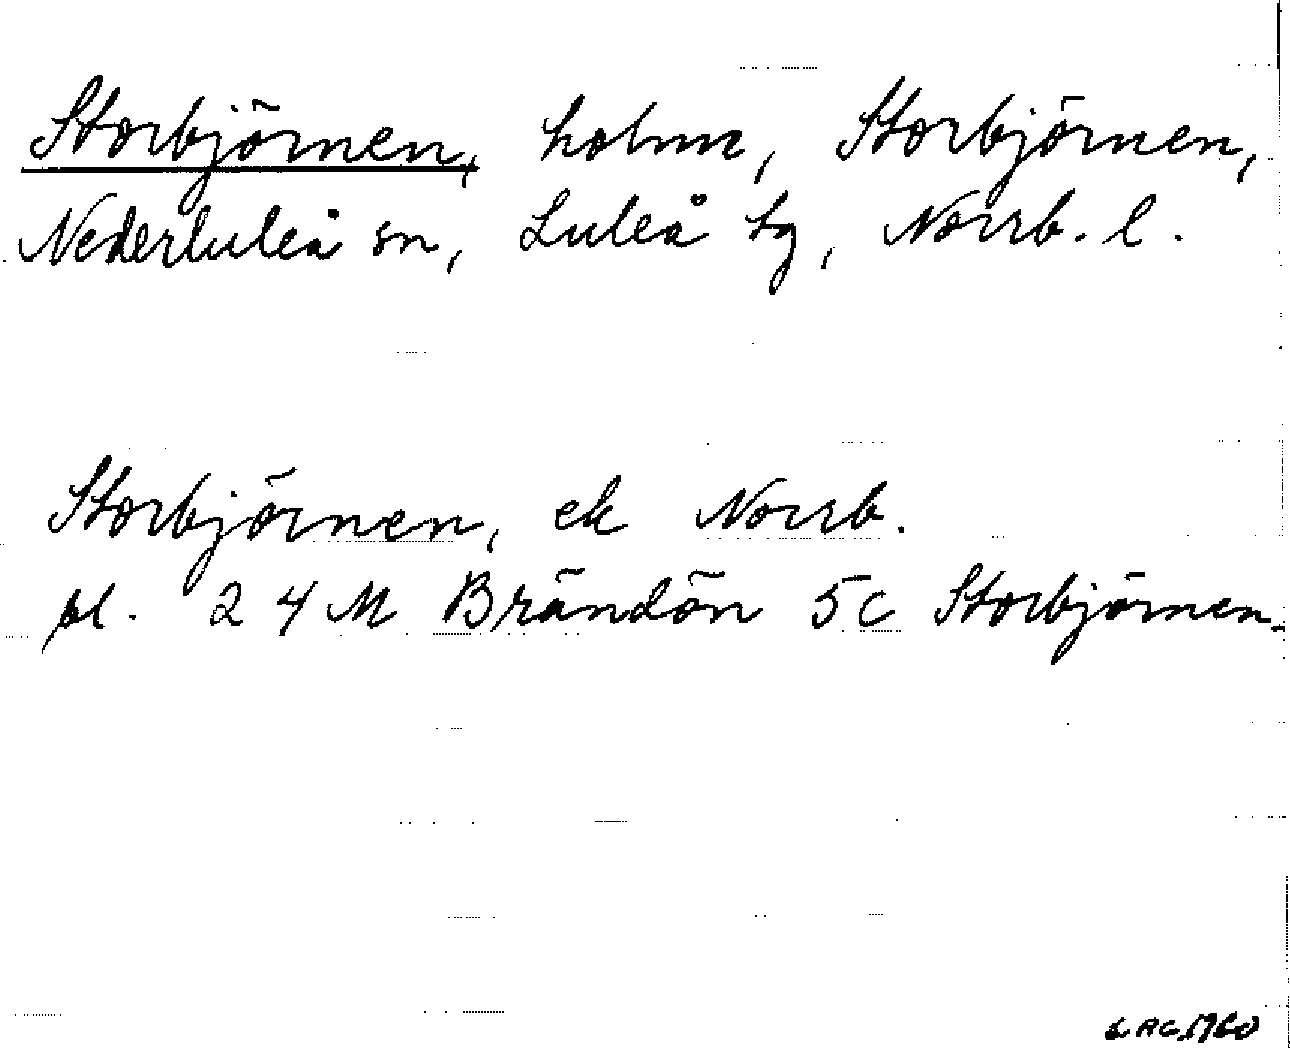 Storbjörnen, holme, Storbjörnen,
Nederluleå sn, Luleå tg, Norrb. l.
Storbjörnen, ek Norrb.
bl. 24M Brändön 5c Storbjörnen.